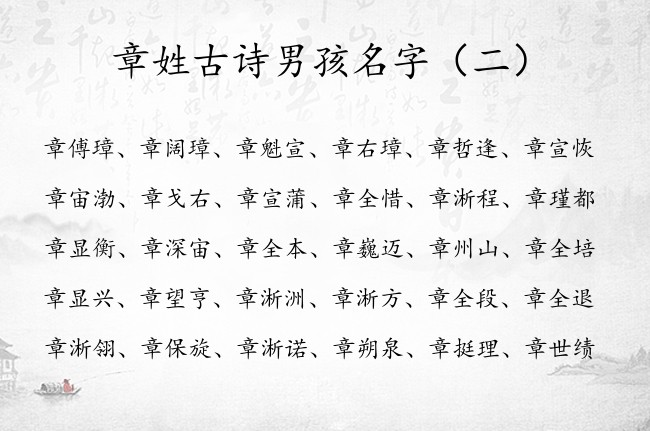 章姓古诗男孩名字（二）
章傅璋、章阔璋、章魁宣、章右璋、章哲逢、章宣恢
章宙渤、章戈右、章宣蒲、章全惜、章淅程、章瑾都
章显衡、章深宙、章全本、章巍迈、章州山、章全培
章显兴、章望亨、章淅洲、章淅方、章全段、章全退
章淅翎、章保旋、章淅诺、章朔泉、章挺理、章世绩